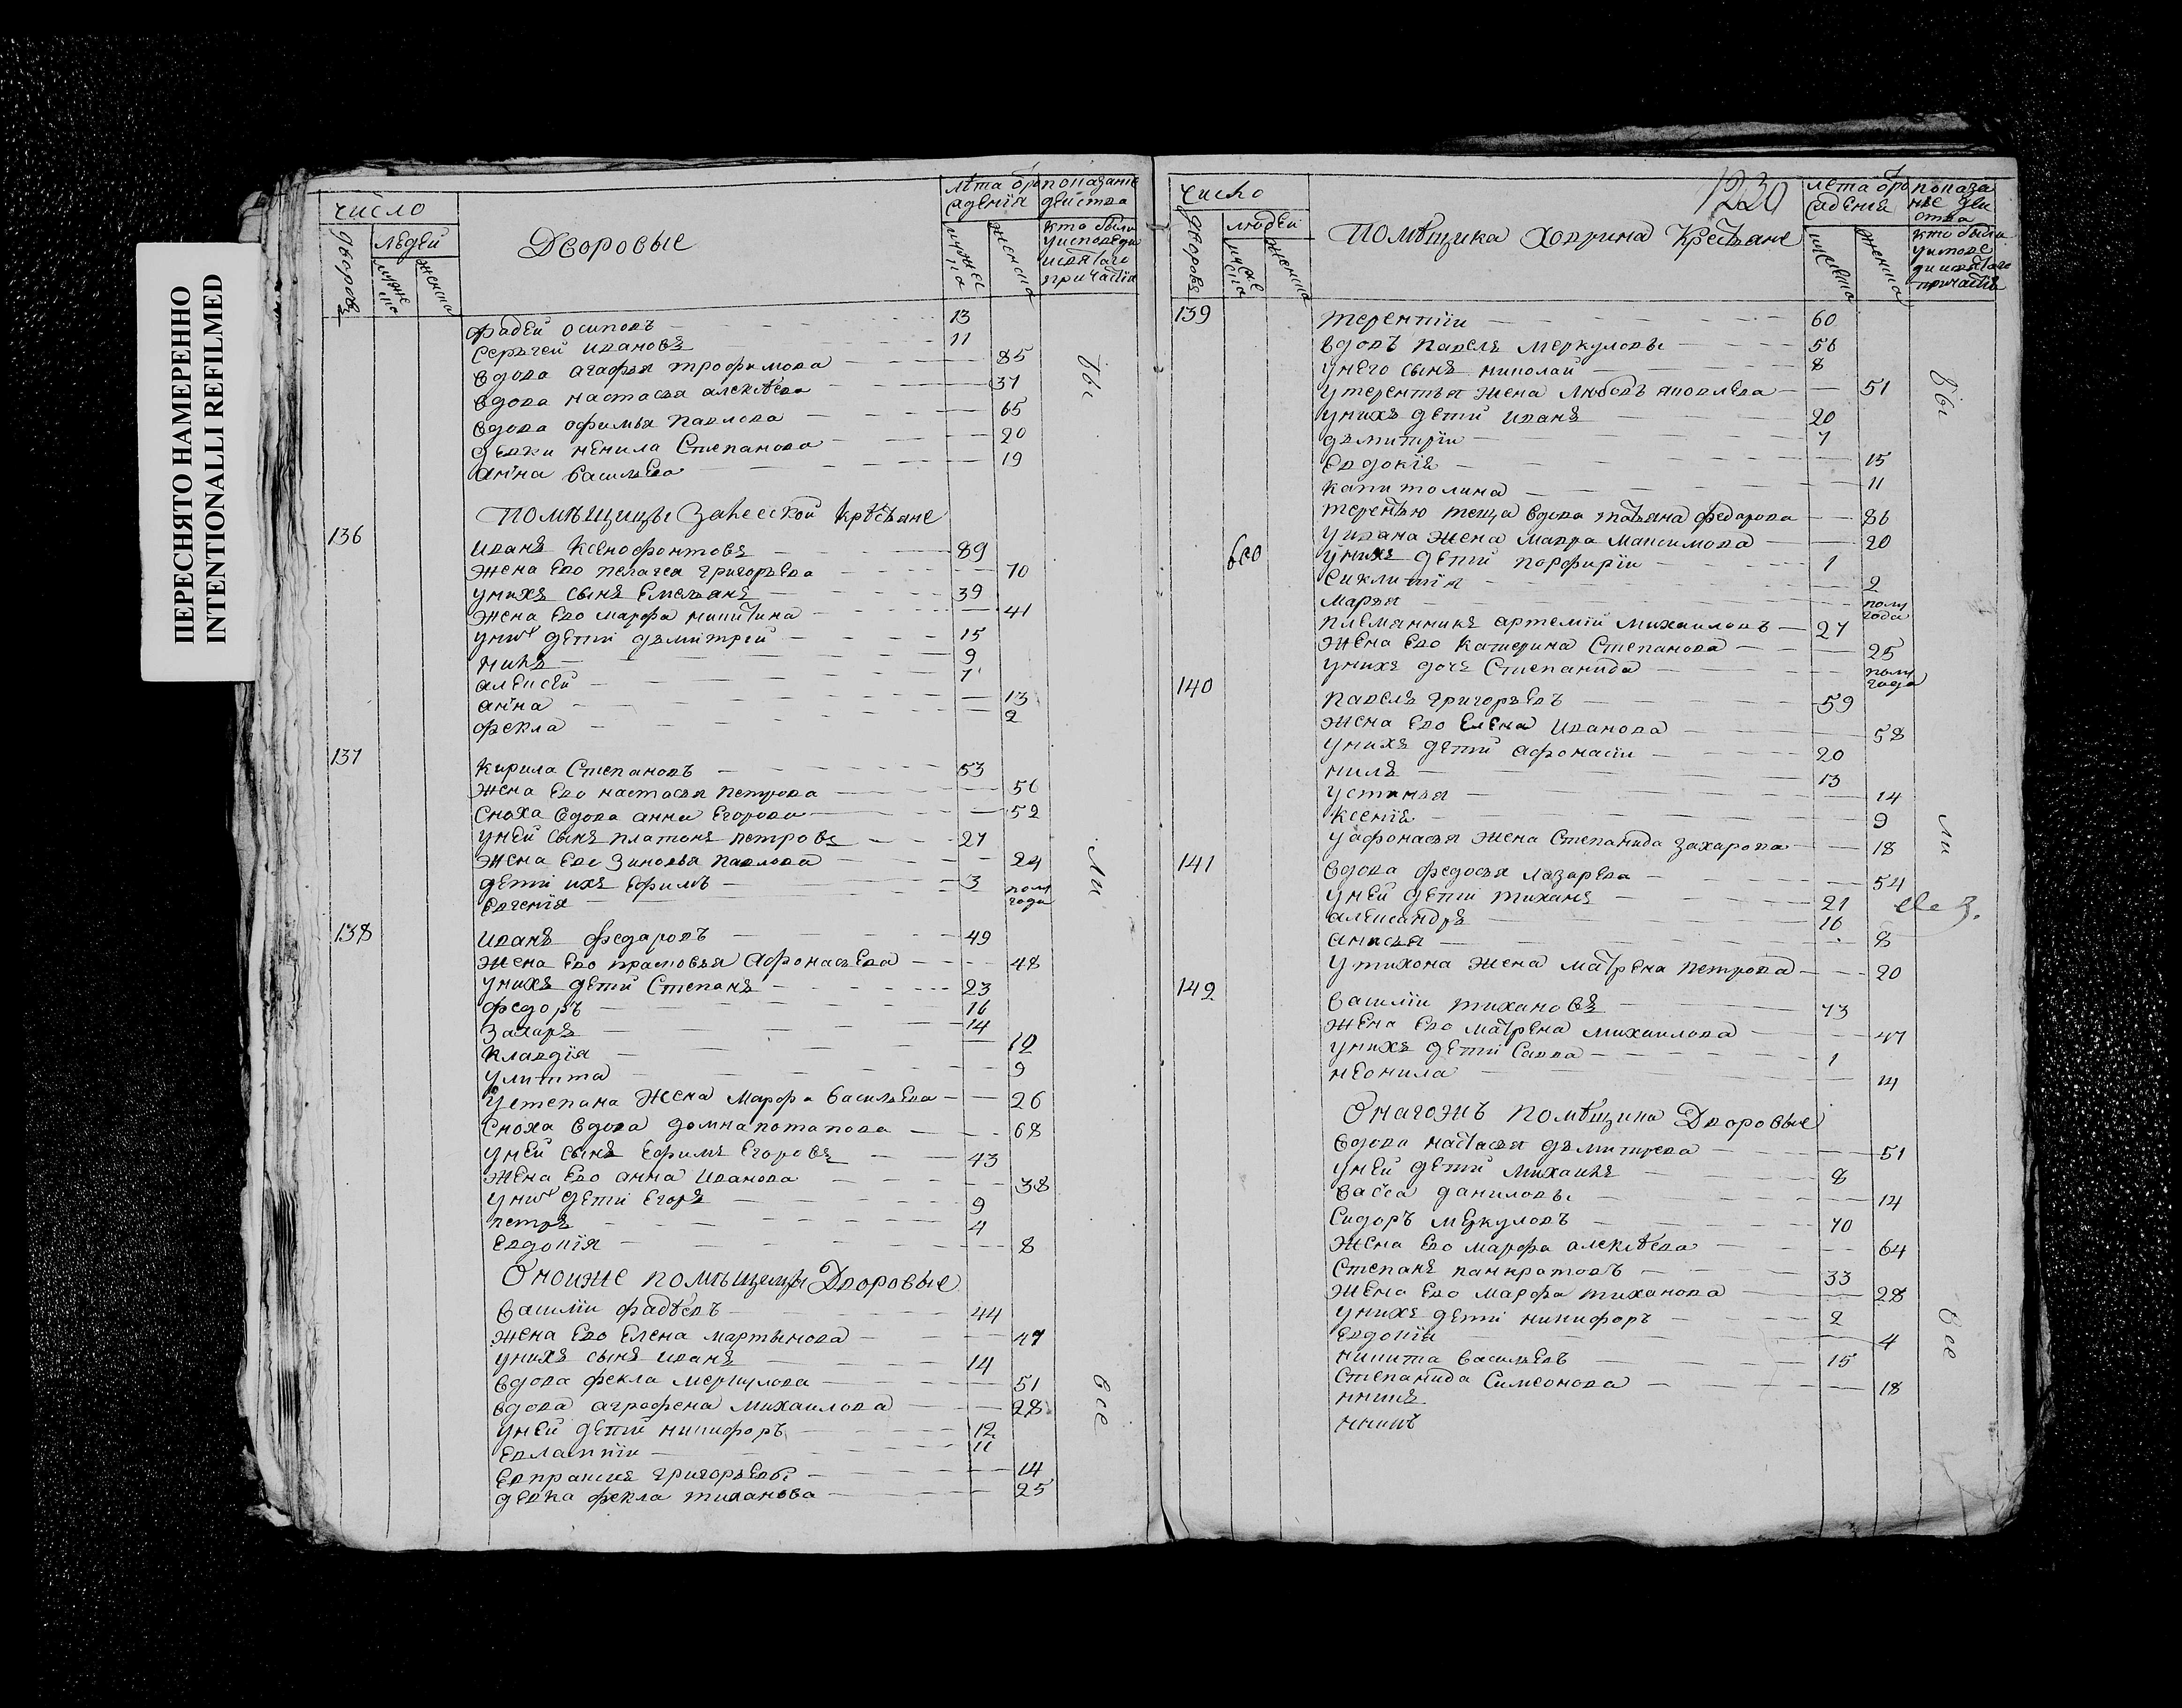 ПЕРЕСНЯТО НАМЕРЕННО
INTENTIONALLI REFILMED
число
дворовъ
людей
мужеска
женска
Дворовые
лѣта отро
жденїя
мужеска
женска
показанїе
действа
кто были
уисповеди
исвятаго
причастїя
фадей осиповъ — 13
Сергѣей ивановъ — 11
вдова агафья трофимова — 85
вдова настасья алексѣева — 37
вдова офимья павлова — 65
девки ненила Степанова — 20
анна васильева — 19
бы
помѣщицы крѣстьяне
136 иванъ ксенофонтовъ — 89
жена ево пелагея григорьева — 70
унихъ сынъ Емельянъ — 39
жена ево марфа никитина — 41
унихъ дети дмитрей — 15
9
алексей — 7
анна — 13
фекла — 2
137 кирила Степановъ — 53
жена ево настасья петрова — 56
Сноха вдова анна Егорова — 52
уней сынъ платонъ петровъ — 27
жена ево зиновья павлова — 24
дети ихъ Ефимъ — 3
Евгенїя — полу года
ли
138 иванъ федаровъ — 49
жена ево прасковья Афонасьева — 48
унихъ дети Степанъ — 23
федоръ — 16
Захаръ — 14
клавдїя — 12
улитта — 9
устепана жена марфа васильева — 26
Сноха вдова домна потапова — 68
уней сынъ Ефимъ Егоровъ — 43
жена ево анна иванова — 38
унихъ дети Егоръ — 9
петръ — 4
Евдокїя — 8
Оноиже помѣщицы Дворовые
василїи фадѣевъ — 44
жена ево Елена мартынова — 47
унихъ сынъ иванъ — 14
вдова фекла меркулова — 51
вдова аграфена михаилова — 28
уней дети никифоръ — 12
Евлампїи — 11
Евпраксия григорьевы — 14
девка фекла тиханова — 25
все
число
дворовъ
людей
мужеска
женска
1230
помѣщика Ховрина Крестьяне
лета отро
жденїя
мужеска
женска
показа
нїе дей
ства
кто были
уиспове
ди исвятаго
причастїя
139 терентїи — 60
вдовъ павелъ меркуловъ — 56
унего сынъ николай — 8
утерентья жена любовь яковлева — 51
унихъ дети иванъ — 20
дмитрїи — 7
Евдокїя — 15
капитолина — 11
терентью теща вдова татьяна федарова — 86
уивана жена мавра максимова — 20
унихъ дети порфирїи — 1
2
марья — полу года
племянникъ артемїй михаиловъ — 27
жена ево катерина Степанова — 25
унихъ дочь Степанида — полу года
бы
140 павелъ григорьевъ — 59
жена ево Елена иванова — 58
унихъ дети афонасїи — 20
нилъ — 13
устинья — 14
ксенїя — 9
уафонасья жена Степанида захарова — 18
141 вдова федосья лазарева — 54
уней дети тиханъ — 21
александръ — 16
анисья — 8
утихона жена матрена петрова — 20
ли
142 василїи тихановъ — 73
жена ево матрена михаилова — 47
унихъ дети Савва — 1
неонила — 14
Онагожъ помѣщика Дворовые
вдова настасья дмитрева — 51
уней дети михаилъ — 8
васса даниловы — 14
Сидоръ меркуловъ — 70
жена ево марфа алексѣева — 64
Степанъ панкратовъ — 33
жена ево марфа тиханова — 28
унихъ дети никифоръ — 2
Евдокїя — 4
никита васильевъ — 15
Степанида Симеонова — 18
все